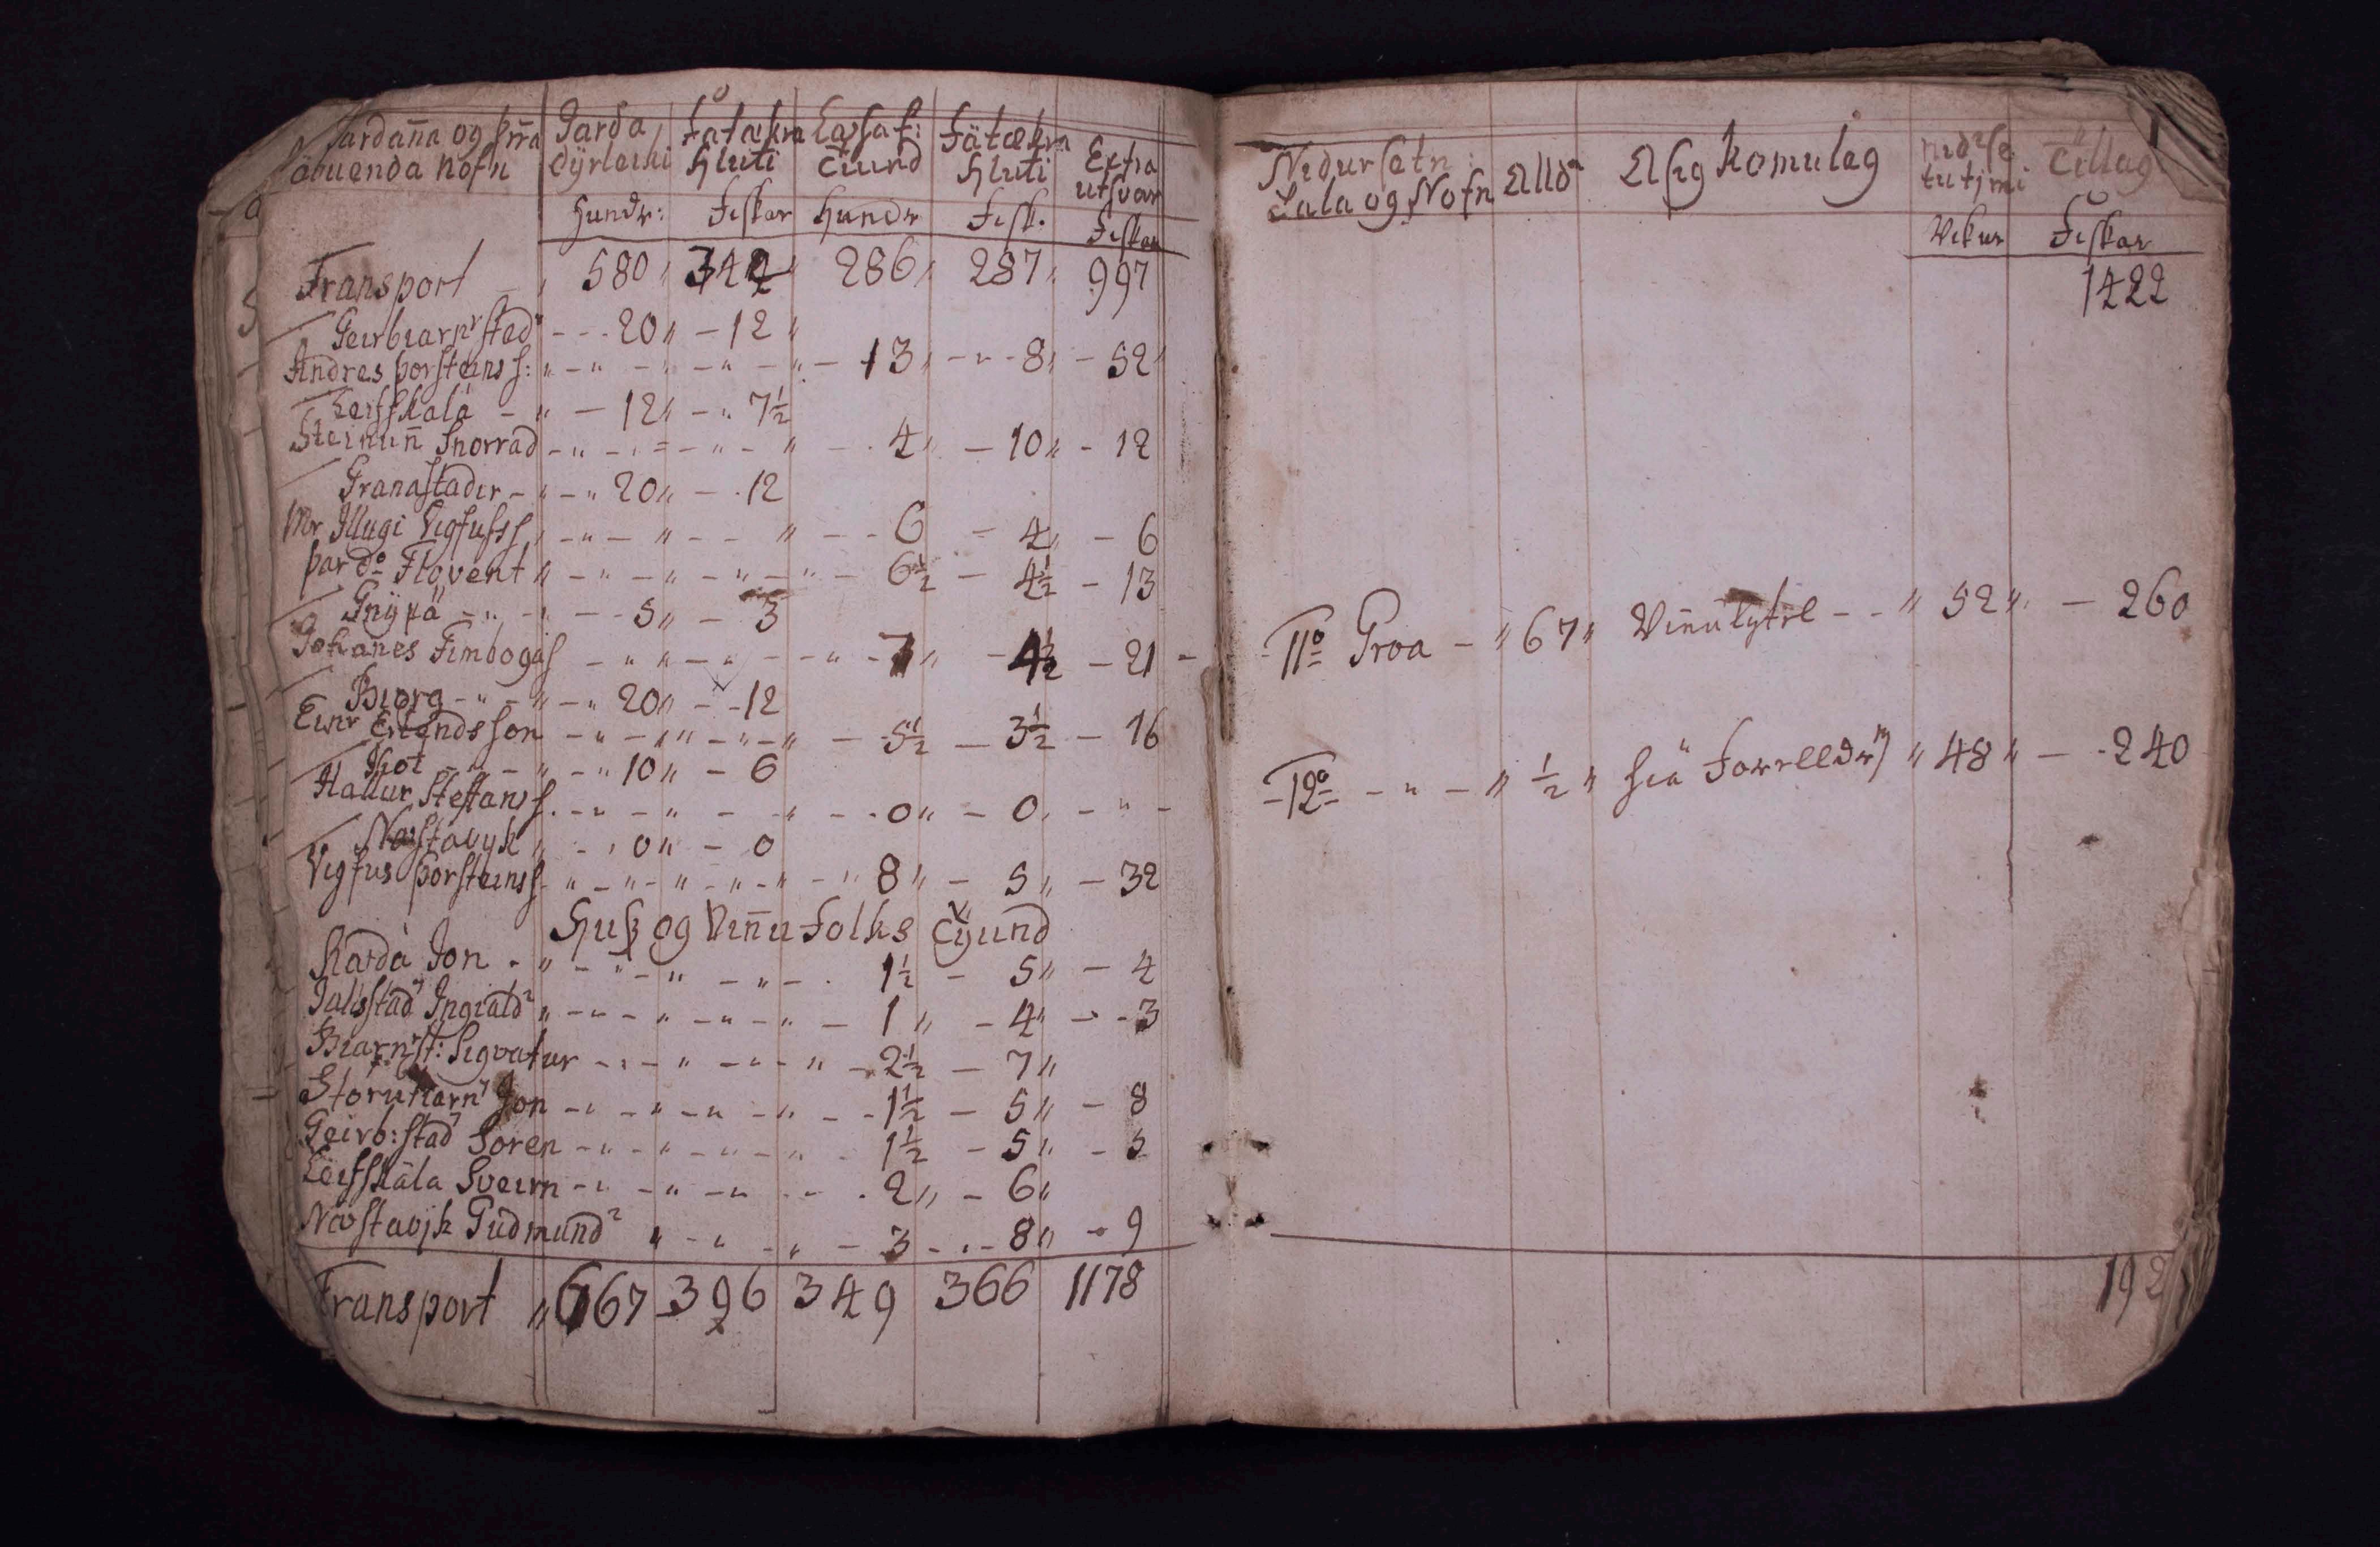 Jardanna og þrra Jarda Fatækra Lausaf: Fätækra Extra
äbuenda nöfn dÿrleiki hluti Tiund hluti utsvar
Hundr: Fiskar Hundr Fisk. Fiskar
Transport 580 „ 342 „ 286 „ 287 „ 997
Geirbiarnrstad 20 „ 12 „
Andres þorsteinss: 13 „ 8 „ 52 „
Leifskalá 12 „ 7½
Steinunn Snorrad 4 „ 10 „ 12
Granastader 20 „ 12
Mr Illugi Vigfuss 6 4 „ 6
þar do Flovent 6½ 4½ 13
Gnÿpä 5 „ 3
Johanes Finbogas 7 „ 4½ 21
Biörg 20 „ 12
Einr Erlendsson 5½ 3½ 16
Kot 10 „ 6
Hallur Steffanss. 0 „ 0
Naustavyk 0 „ 0
Vigfus þorsteinss 8 „ 5 „ 32
Hus og Vinnu folks Tÿund
Skarda Jon 1½ 5 „ 4
Jalsstad Ingiald 1 „ 4 „ 3
Biarnst: Sigvatur 2½ 7 „
Storutiarn Jon 1½ 5 „ 8
Geirb: stad Soren 1½ 5 „ 5
Leifskäla Sveirn 2 „ 6 „
Naustavjk Gudmund 3 8 „ 9
Transport „ 667 396 349 366 1178
Nidursetn
Tala og Nöfn Alldr Asigkomulag nidrse tutjmi Tillag
Vikur Fiskar
1422
11o Groa „ 67 „ Vinnulytel „ 52 „ 260
12o „ ½ „ hia Forrelldr „ 48 „ 240
192